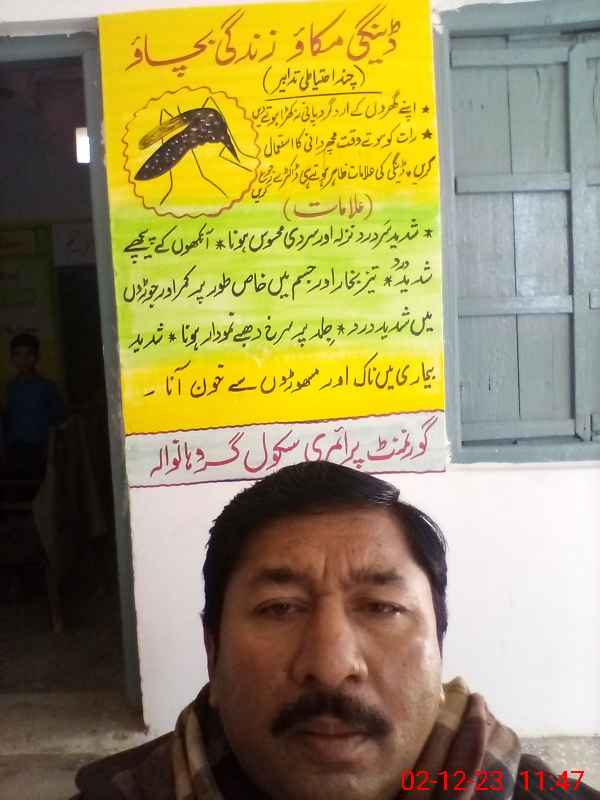 ڈینگی مکاؤ زندگی بچاؤ
(چند احتیاطی تدابیر)
* اپنے گھروں کے ارد گرد پانی نہ کھڑا ہونے دیں
* رات کو سوتے وقت مچھر دانی کا استعمال
کریں * ڈینگی کی علامات ظاہر ہوتے ہی ڈاکٹر سے
(علامات)
* شدید سر درد نزلہ اور سردی محسوس ہونا * آنکھوں کے پیچھے
شدید درد * تیز بخار اور جسم میں خاص طور پر کمر اور جوڑوں
میں شدید درد * جلد پر سرخ دھبے نمودار ہونا * شدید
بیماری میں ناک اور مسوڑوں سے خون آنا ۔
گورنمنٹ پرائمری سکول گروہانوالہ
02-12-23 11:47